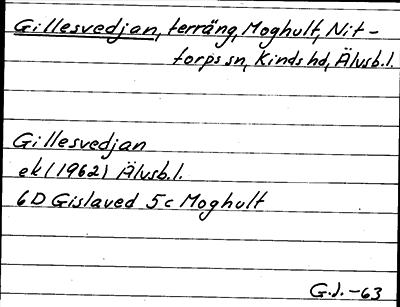 Gillesvedjan, terräng, Moghult, Nit-
torps sn, Kinds hd, Älvsb.l.
Gillesvedjan
ek (1962) Älvsb.l.
6D Gislaved 5c Moghult
G.J. -63